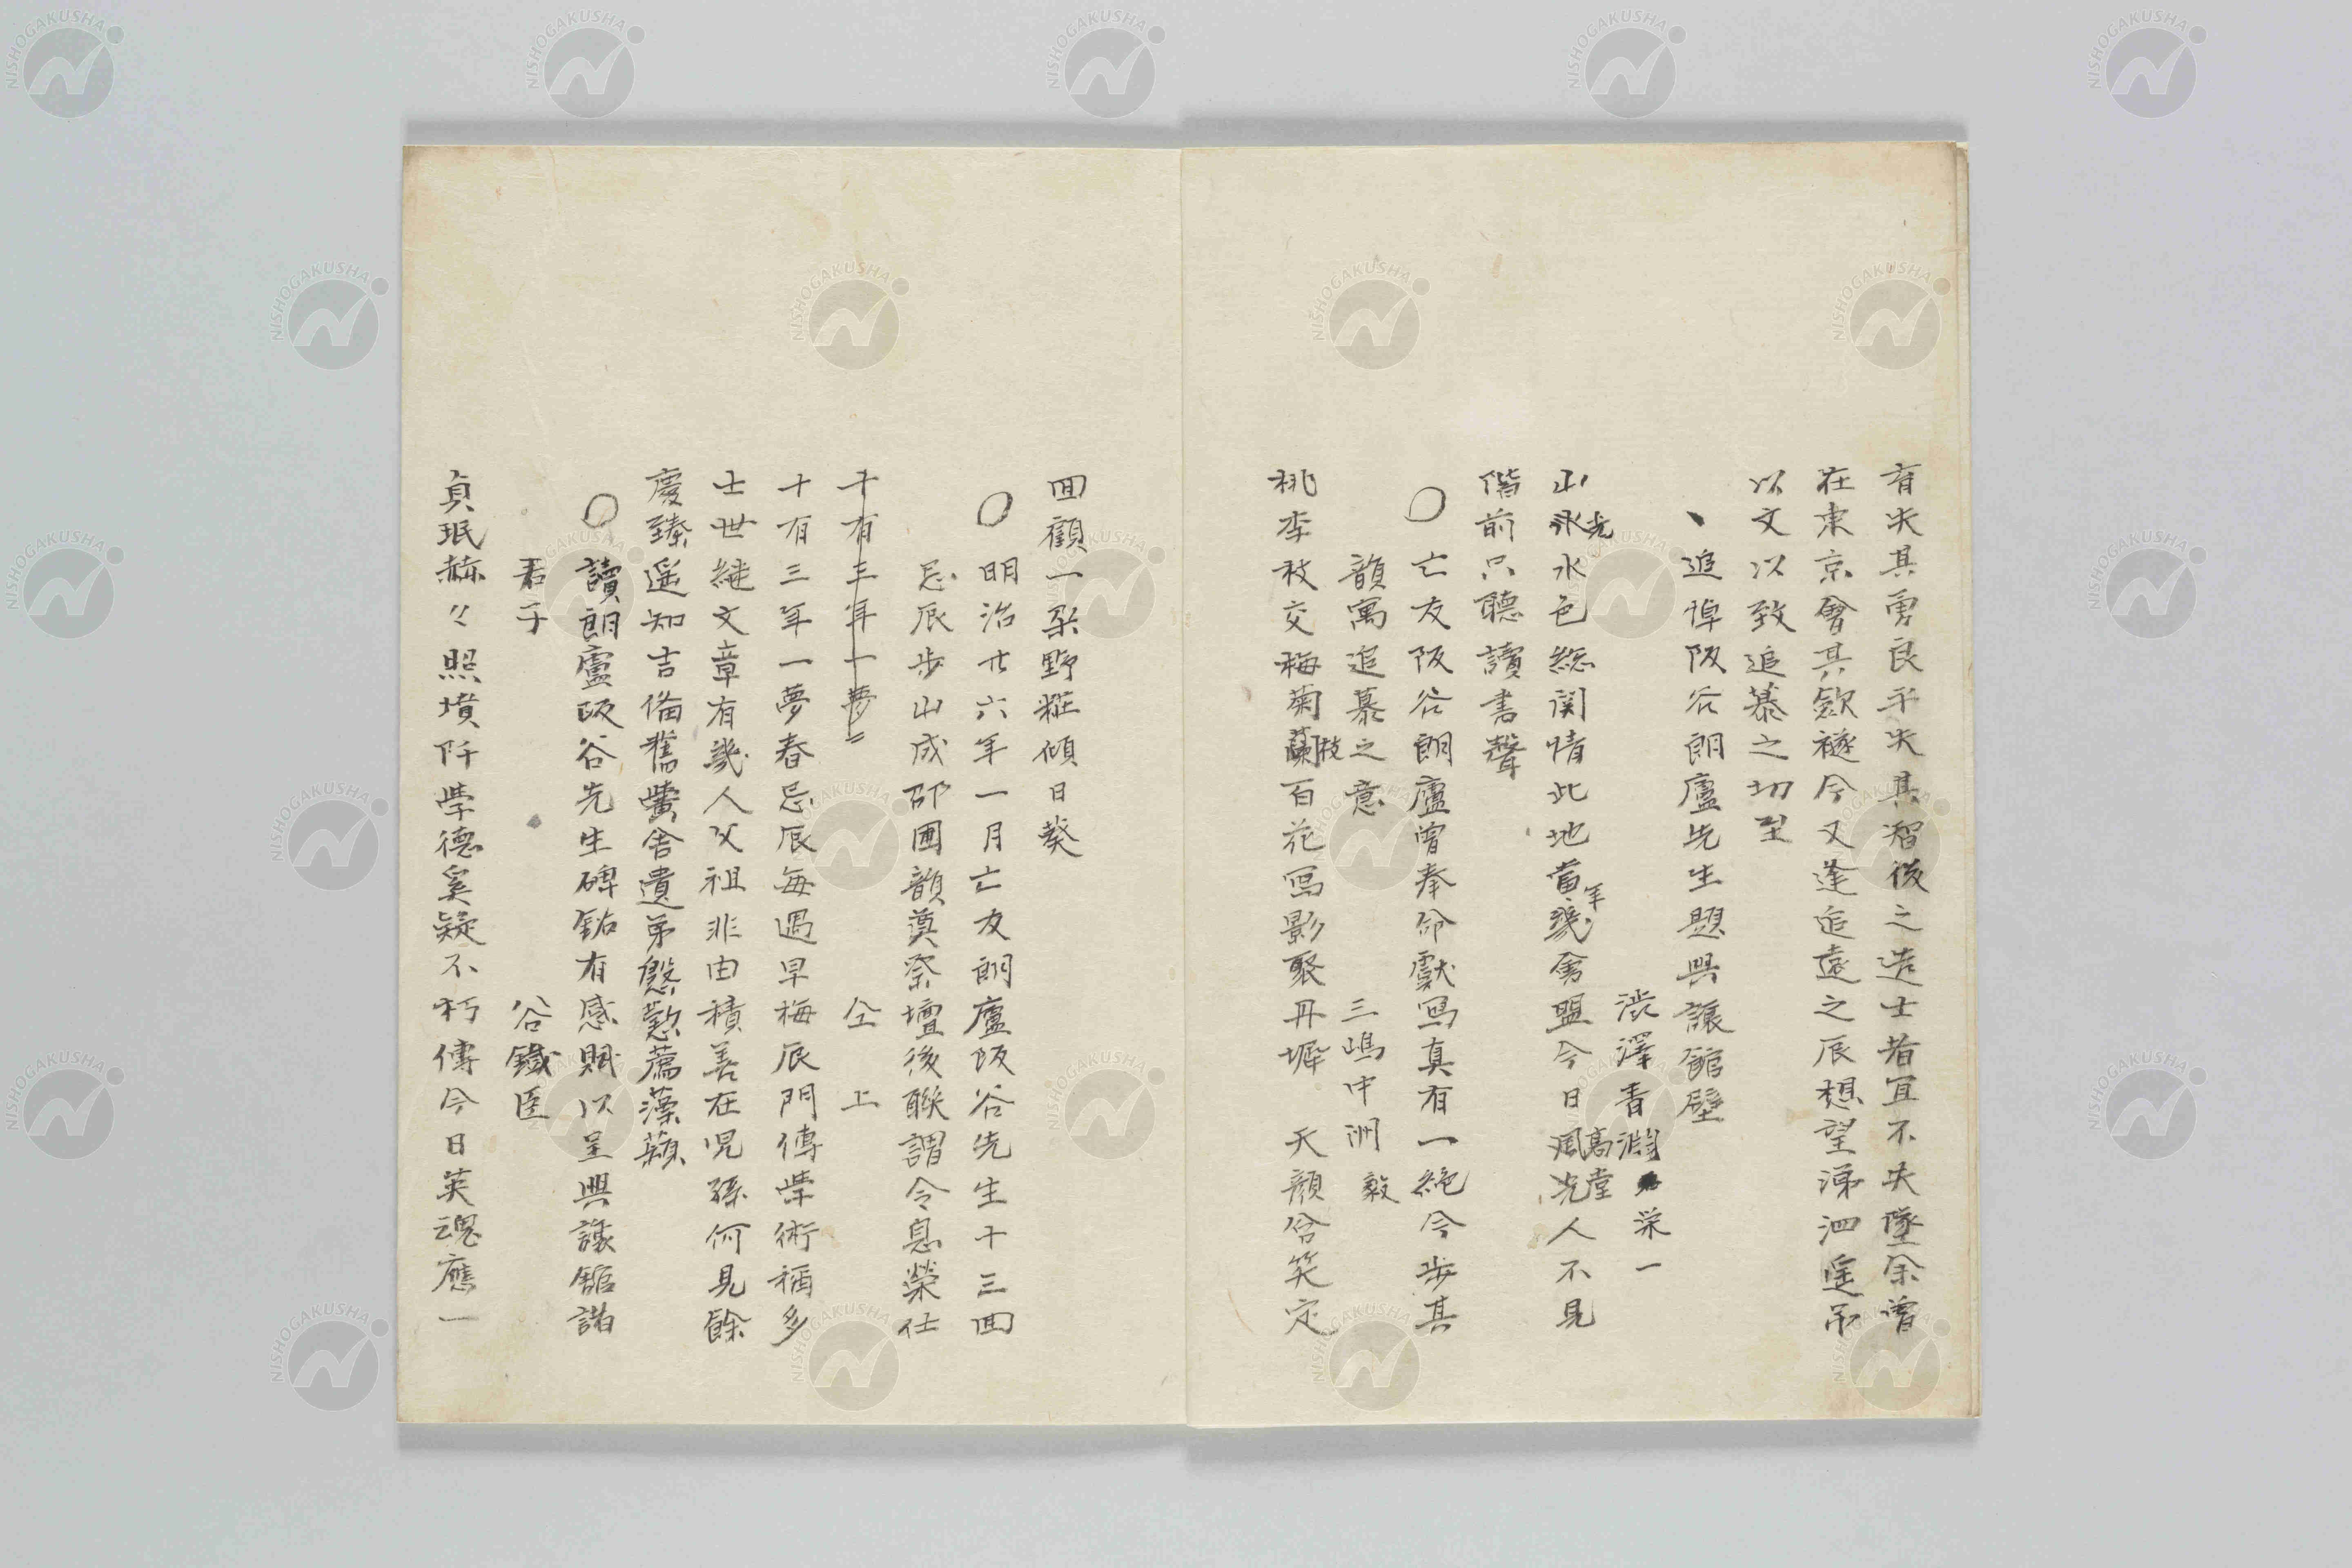 有失其勇良平失其智後之造士者宜不失墜余曾
在東京會其歛襚今又逢追遠之辰想望涕泗遥吊
以文以致追慕之切至
、追悼阪谷朗廬先生題興讓館壁
渋澤青渊 栄一
山光水色総関情此地當年幾會盟今日高堂人不見
階前只聽讀書聲
○亡友阪谷朗廬曾奉命獻寫真有一絶今歩其
韻寓追慕之意 三嶋中洲 毅
桃李枝交梅菊枝百花寫影聚丹墀 天顔含笑定
回顧一朶野粧傾日葵
○明治廿六年一月亡友朗廬阪谷先生十三回
忌辰歩山成邵圃韻奠祭壇後聯謂令息榮仕
十有三年一夢 仝上
十有三年一夢春忌辰每遇早梅辰門傳學術稱多
士世継文章有幾人父祖非由積善在児孫何見餘
慶臻遥知吉備舊黌舎遺弟慇懃薦藻蘋
○讀朗廬阪谷先生碑銘有感賦以呈興讓館諸
君子 谷鐵臣
貞珉赫々照墳阡學德奚疑不朽傳今日英魂應一
NISHOGAKUSHA